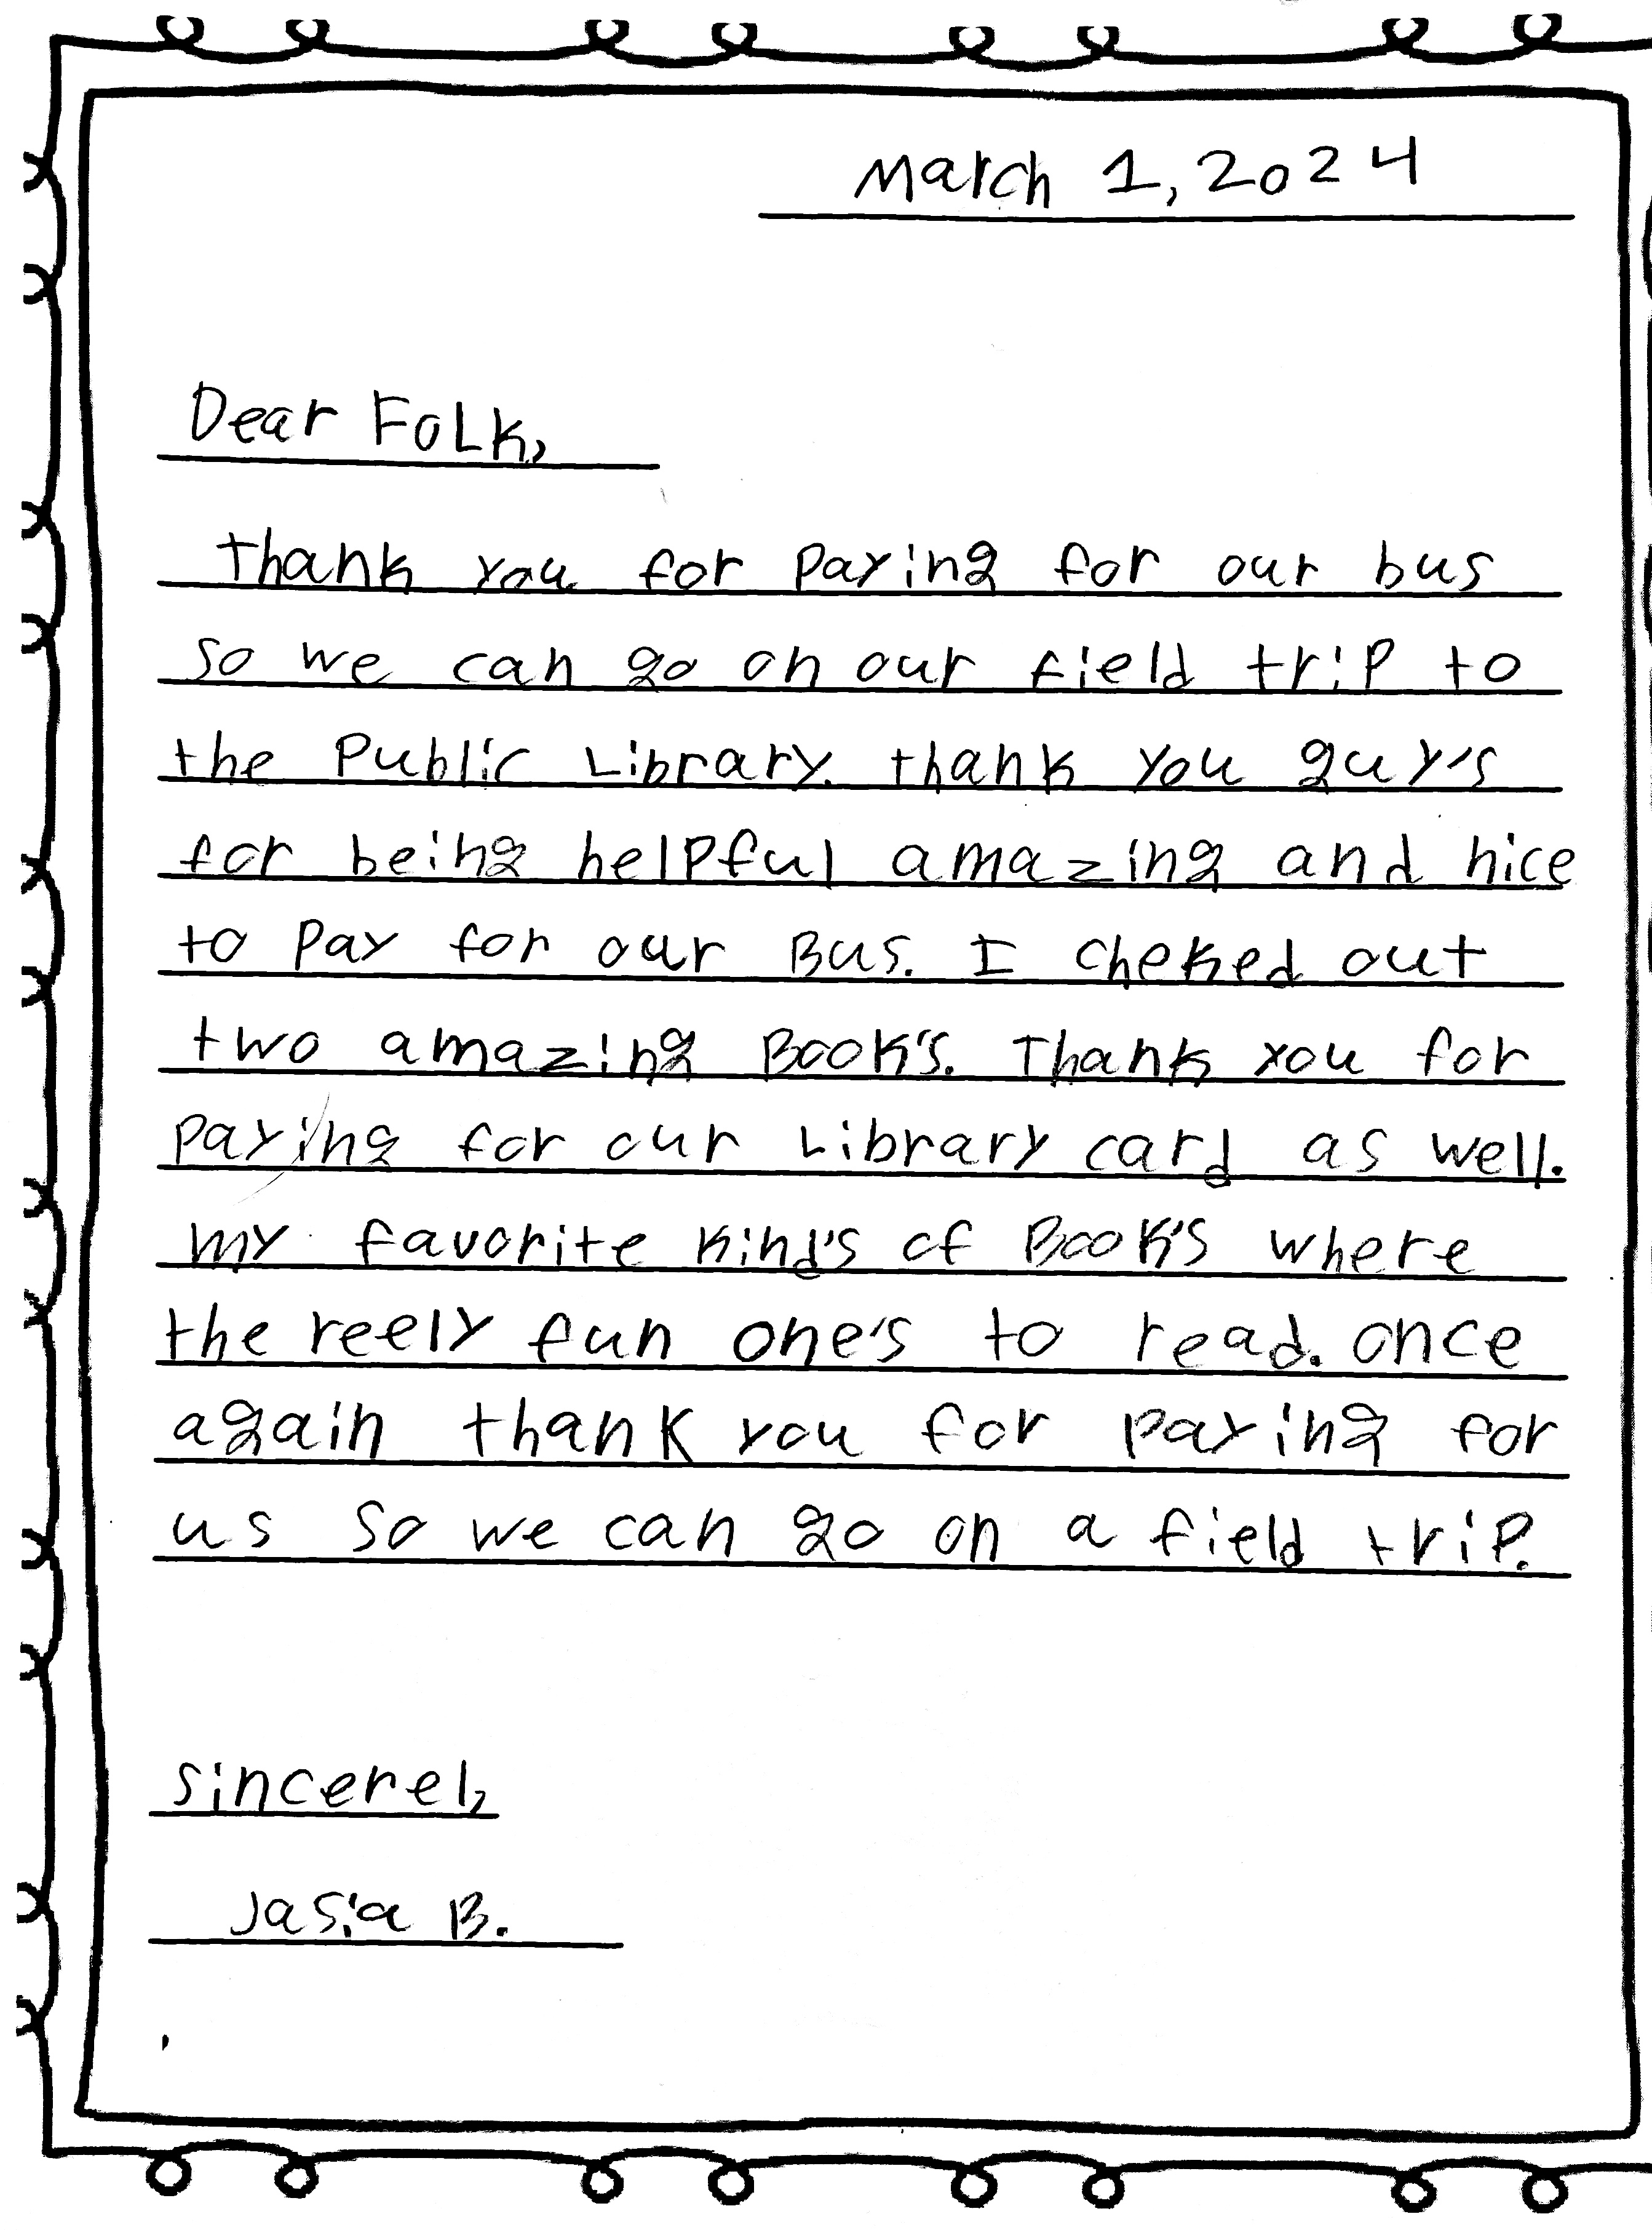 March 1, 2024
Dear FoLk,
thank you for paying for our bus
so we can go on our field trip to
the Public Library. thank you guy's
for being helpful amazing and nice
to pay for our Bus. I cheked out
two amazing Book's. Thank you for
paying for our Library card as well.
my favorite kind's of Book's where
the reely fun one's to read. once
again thank you for paying for
us so we can go on a field trip.
sincerel,
Jasia B.